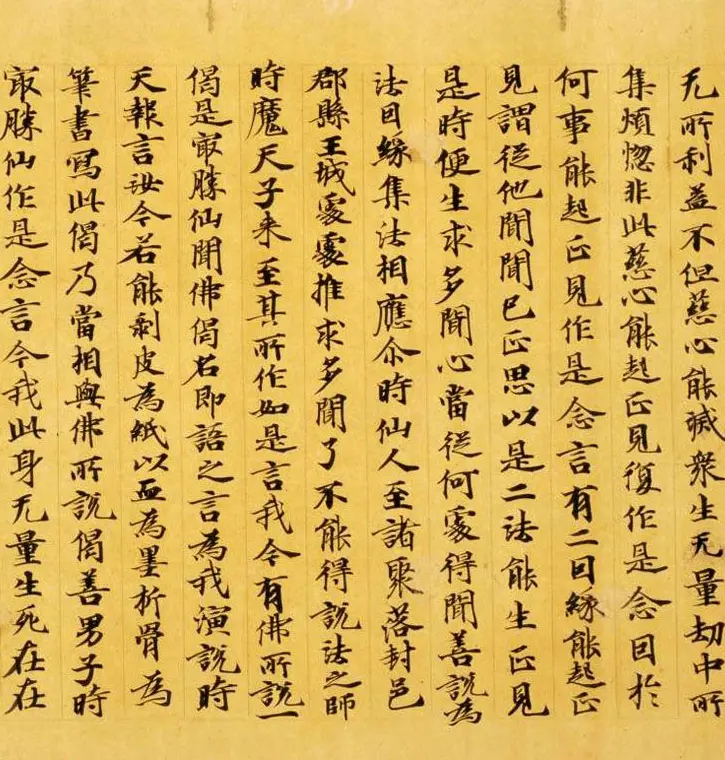 无所利益不但慈心能滅衆生无量劫中所
集煩惱非此慈心能起正見復作是念因於
何事能起正見作是念言有二因緣能起正
見謂從他聞聞已正思以是二法能生正見
是時便生求多聞心當從何處得聞善說為
法因緣集法相應尒時仙人至諸聚落封邑
郡縣王城處處推求多聞了不能得說法之師
時魔天子来至其所作如是言我今有佛所說一
偈是冣勝仙聞佛偈名即語之言為我演說時
天報言汝今若能剥皮為紙以血為墨析骨為
筆書寫此偈乃當相與佛所說偈善男子時
冣勝仙作是念言今我此身无量生死在在